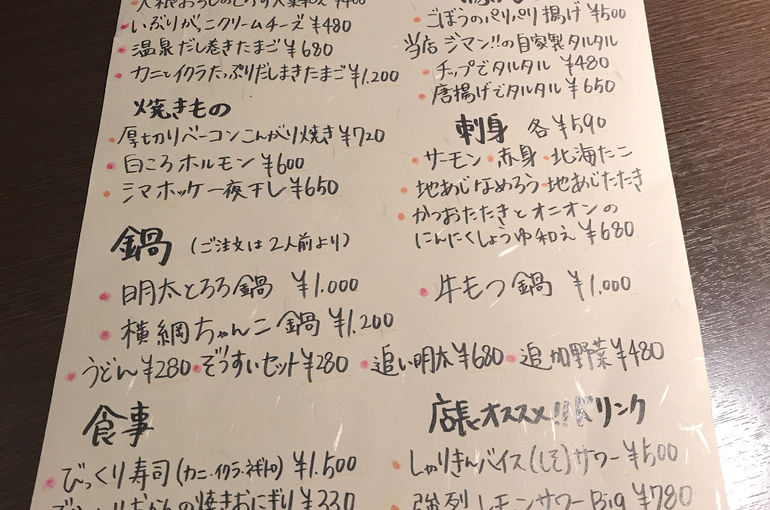 いぶりがっこクリームチーズ ¥480
温泉だし巻きたまご ¥680
カニとイクラたっぷりだしまきたまご ¥1,200
焼きもの
厚切りベーコンこんがり焼き ¥720
白ころホルモン ¥600
シマホッケ一夜干し ¥650
ごぼうのパリパリ揚げ ¥500
当店ジマン!!の自家製タルタル
・チップでタルタル ¥480
・唐揚げでタルタル ¥650
刺身 各¥590
・サーモン・赤身・北海たこ
・地あじなめろう・地あじたたき
・かつおたたきとオニオンの
にんにくしょうゆ和え ¥680
鍋 (ご注文は2人前より)
・明太とろろ鍋 ¥1.000
・牛もつ鍋 ¥1,000
・横綱ちゃんこ鍋 ¥1.200
・うどん ¥280・ぞうすいセット ¥280・追い明太 ¥680・追加野菜 ¥480
食事
・びっくり寿司(カニ・イクラ・ネギトロ) ¥1.500
焼きおにぎり ¥330
店長オススメ!!ドリンク
・しゃりきんバイス(しそ)サワー ¥500
・強烈レモンサワーBig ¥780